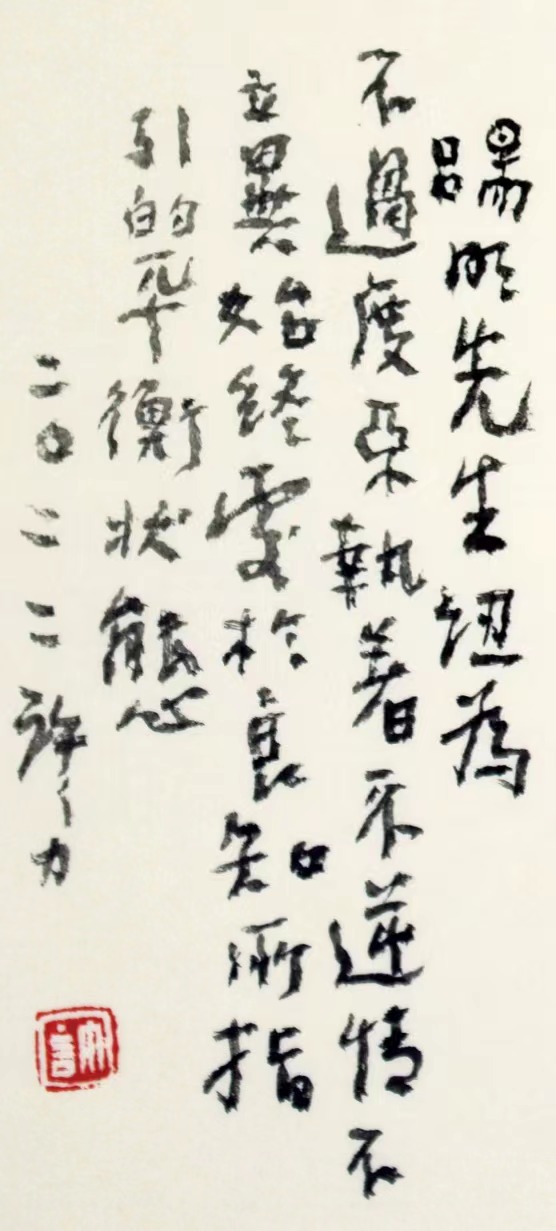 陽明先生認為
不過度執着不逆情不
立異始終處於良知所指
引的平衡狀態
二〇二二許力